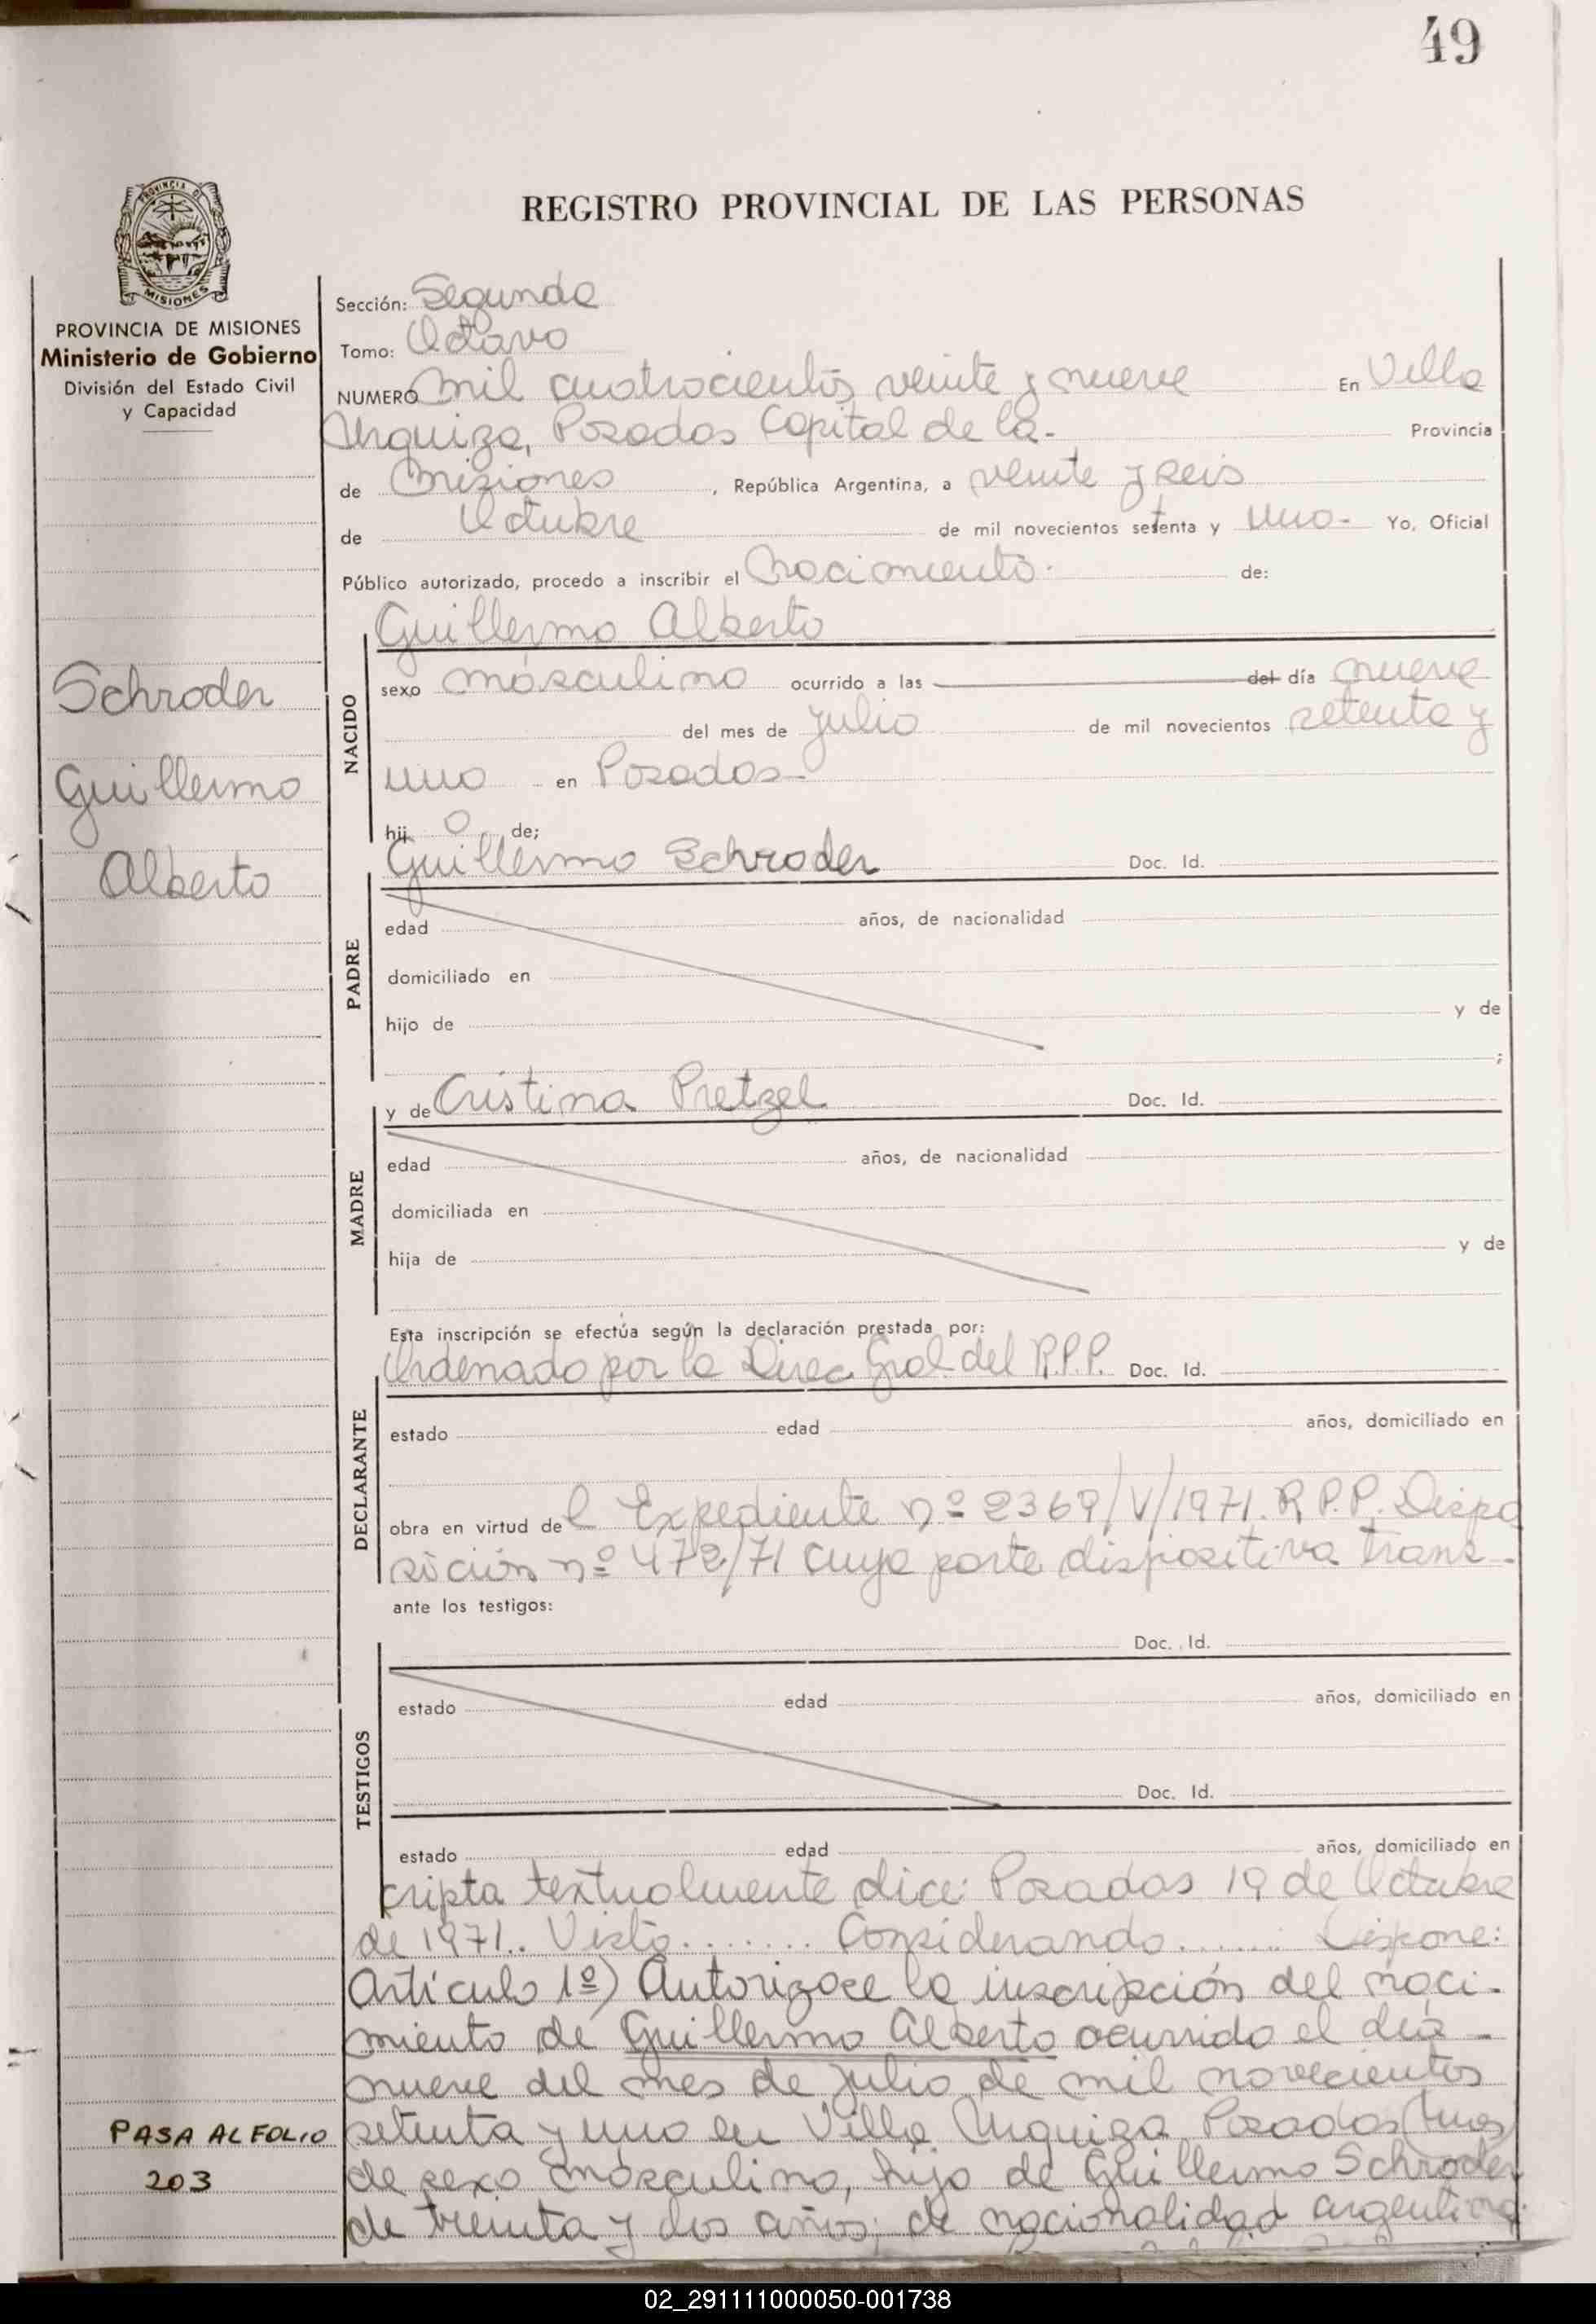 49
REGISTRO PROVINCIAL DE LAS PERSONAS
PROVINCIA DE
MISIONES
PROVINCIA DE MISIONES
Ministerio de Gobierno
División del Estado Civil
y Capacidad
Schroder
Guillermo
Alberto
PASA AL FOLIO
203
Sección: Segunda
Tomo: Octavo
NUMERO mil cuatrocientos veinte y nueve En Villa
Urquiza, Posadas Capital de la- Provincia
de Misiones, República Argentina, a veinte y seis
de Octubre de mil novecientos setenta y uno- Yo, Oficial
Público autorizado, procedo a inscribir el Nacimiento- de:
Guillermo Alberto
NACIDO
sexo masculino ocurrido a las del día nueve
del mes de julio de mil novecientos setenta y
uno en Posadas-
hij o de;
Guillermo Schroder Doc. Id.
PADRE
edad años, de nacionalidad
domiciliado en
hijo de y de
;
y de Cristina Pretzel Doc. Id.
MADRE
edad años, de nacionalidad
domiciliada en
hija de y de
Esta inscripción se efectúa según la declaración prestada por:
Ordenado por la Direc. Gral. del R.P.P. Doc. Id.
DECLARANTE
estado edad años, domiciliado en
obra en virtud de l Expediente nº 2369/V/1971. R.P.P. Dispo
sición nº 472/71 cuya parte dispositiva trans-
ante los testigos:
Doc. Id.
TESTIGOS
estado edad años, domiciliado en
Doc. Id.
estado edad años, domiciliado en
cripta textualmente dice: Posadas 19 de Octubre
de 1971.. Visto....... Considerando....... Dispone:
Artículo 1º) Autorizase la inscripción del naci-
miento de Guillermo Alberto ocurrido el día-
nueve del mes de julio de mil novecientos
setenta y uno en Villa Urquiza Posadas
de sexo masculino, hijo de Guillermo Schroder
de treinta y dos años; de nacionalidad argentina
02_291111000050-001738